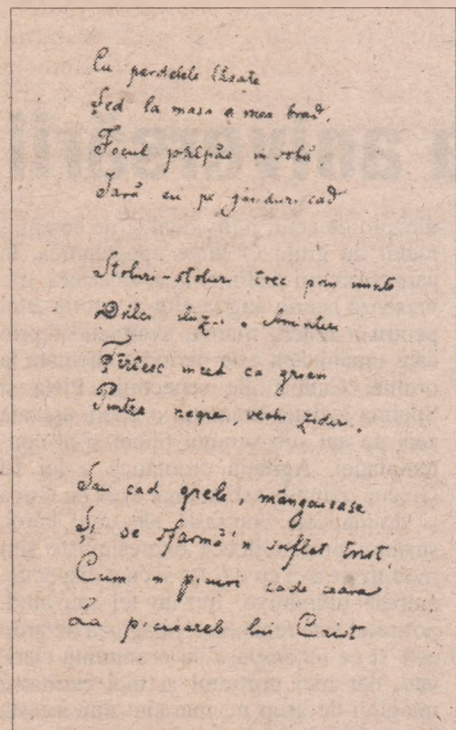 Cu perdelele lăsate
Șed la masa mea de brad,
Focul pâlpâe în sobă
Iară eu pe gânduri cad
Stoluri-stoluri trec prin minte
Dulci iluzii. Amintiri
Țîrîesc încet ca greeri
Pintre negre, vechi zidiri.
Sau cad grele, mângâioase
Și se sfarmă 'n suflet trist,
Cum în picuri cade ceara
La picioarele lui Crist